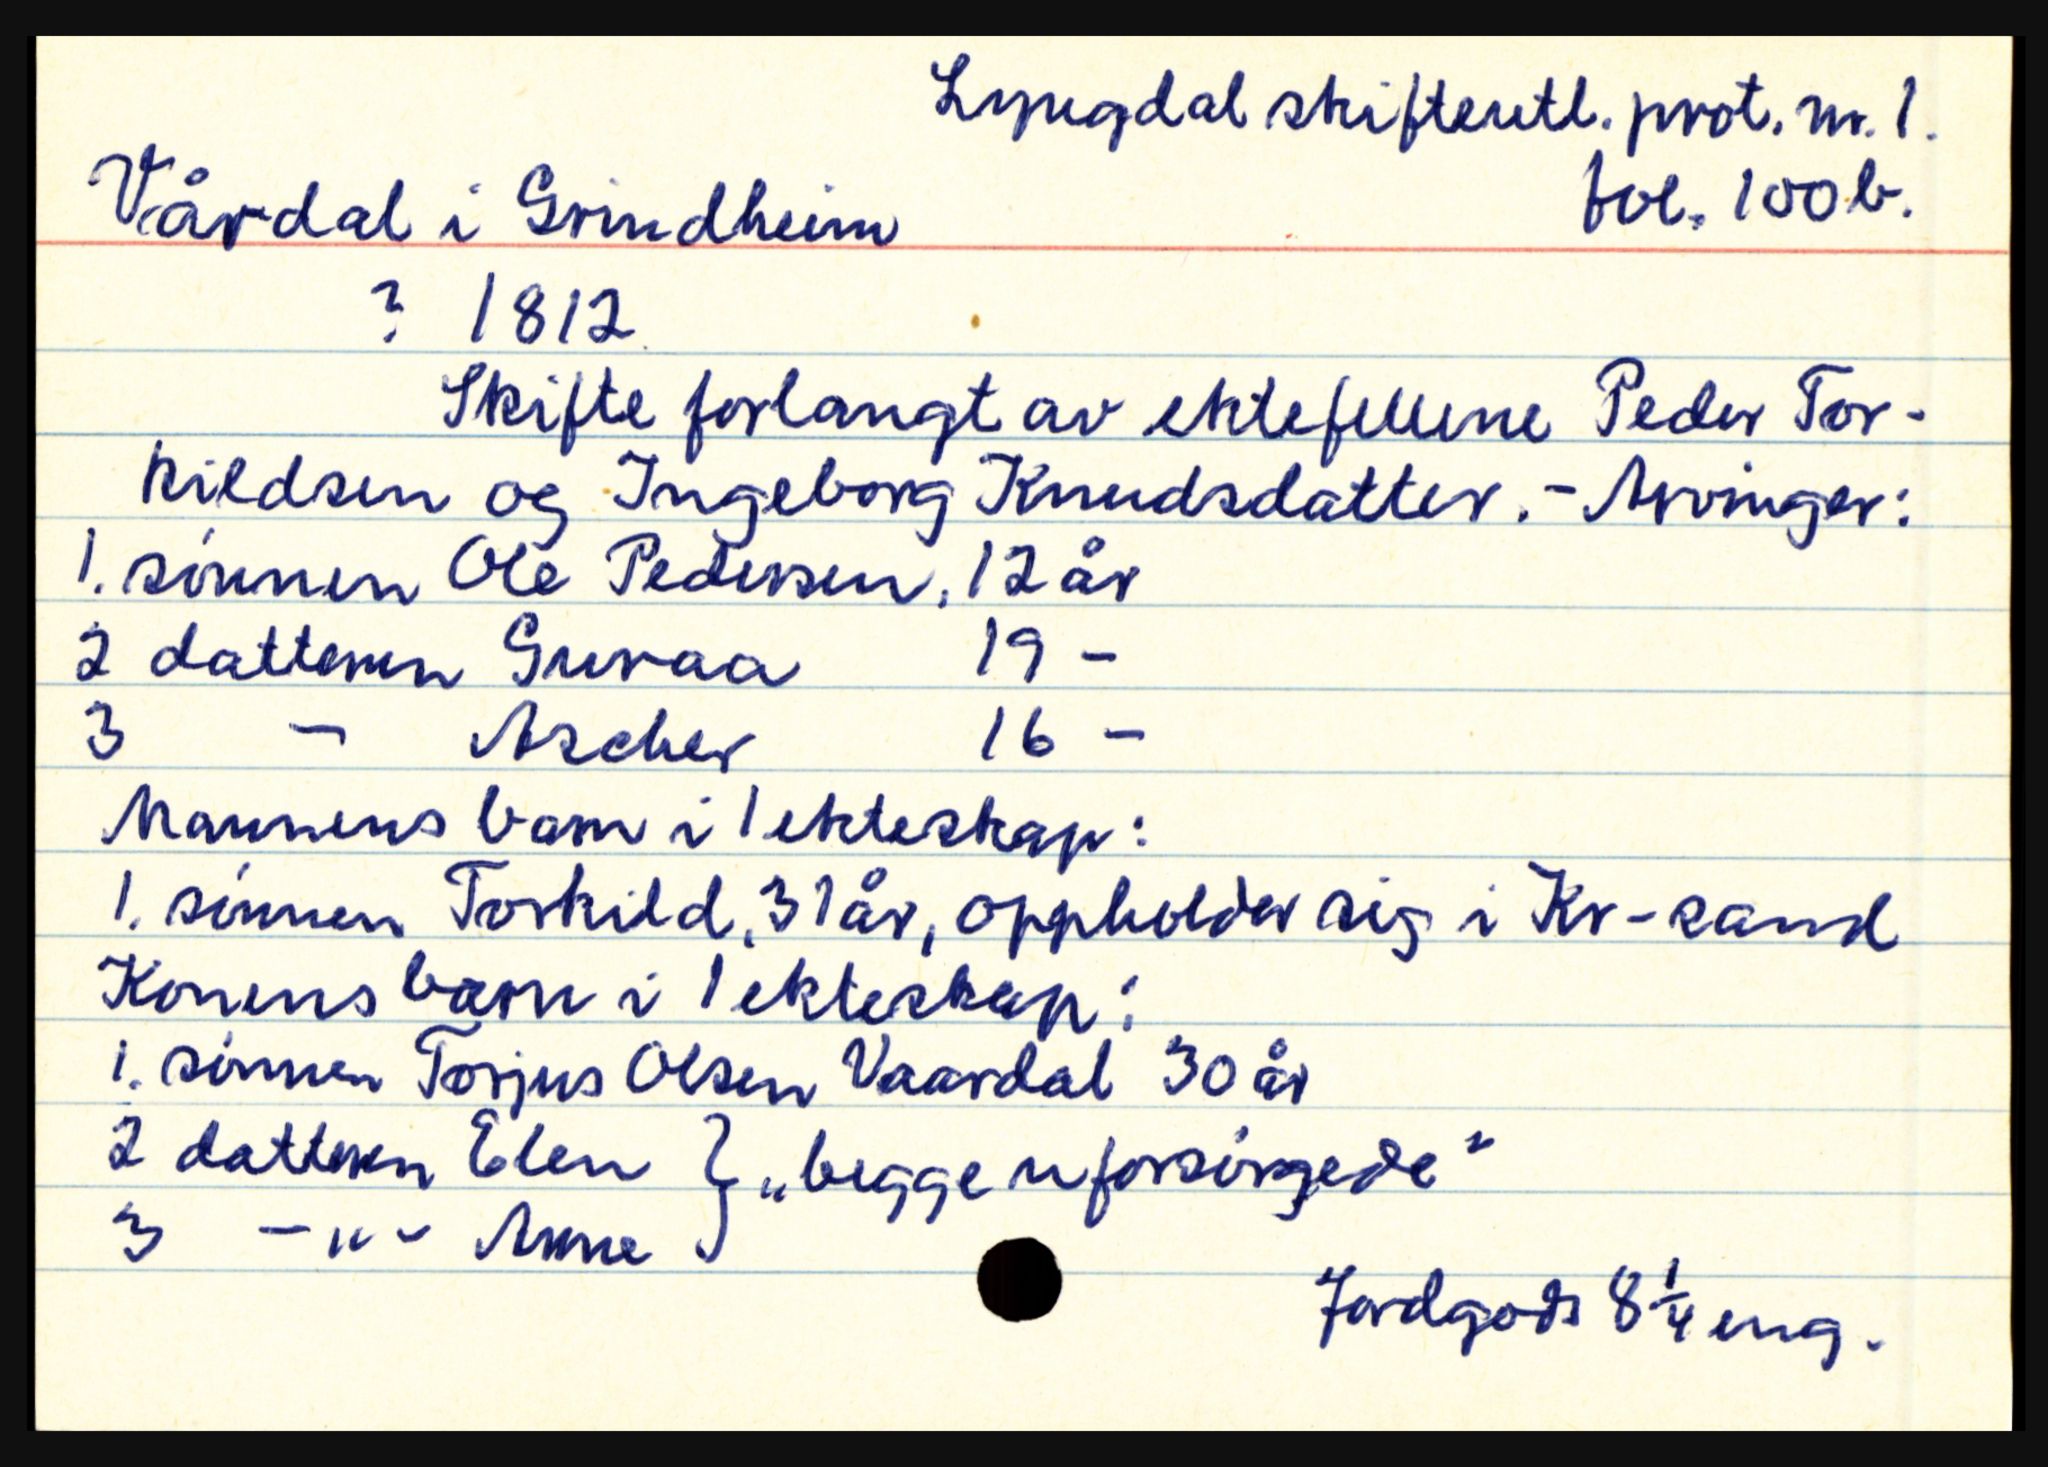 Lyngdal skifteutl. prot. nr. 1.
Vårdal i Grindheim
fol. 100b.
? 1812
Skifte forlangt av ektefellene Peder Tor-
kildsen og Ingeborg Knudsdatter. - Arvinger:
1. sønnen Ole Pedersen, 12 år
2 datteren Guraa 19 -
3 - Ascher 16 -
Mannens barn i 1 ekteskap:
1. sønnen Torkild, 31 år, oppholder sig i Kr-sand
Konens barn i 1 ekteskap:
1. sønnen Torjus Olsen Vaardal 30 år
2 datteren Elen } „begge uforsørgede"
3 -"- Anne
Jordgods 8 1/4 eng.